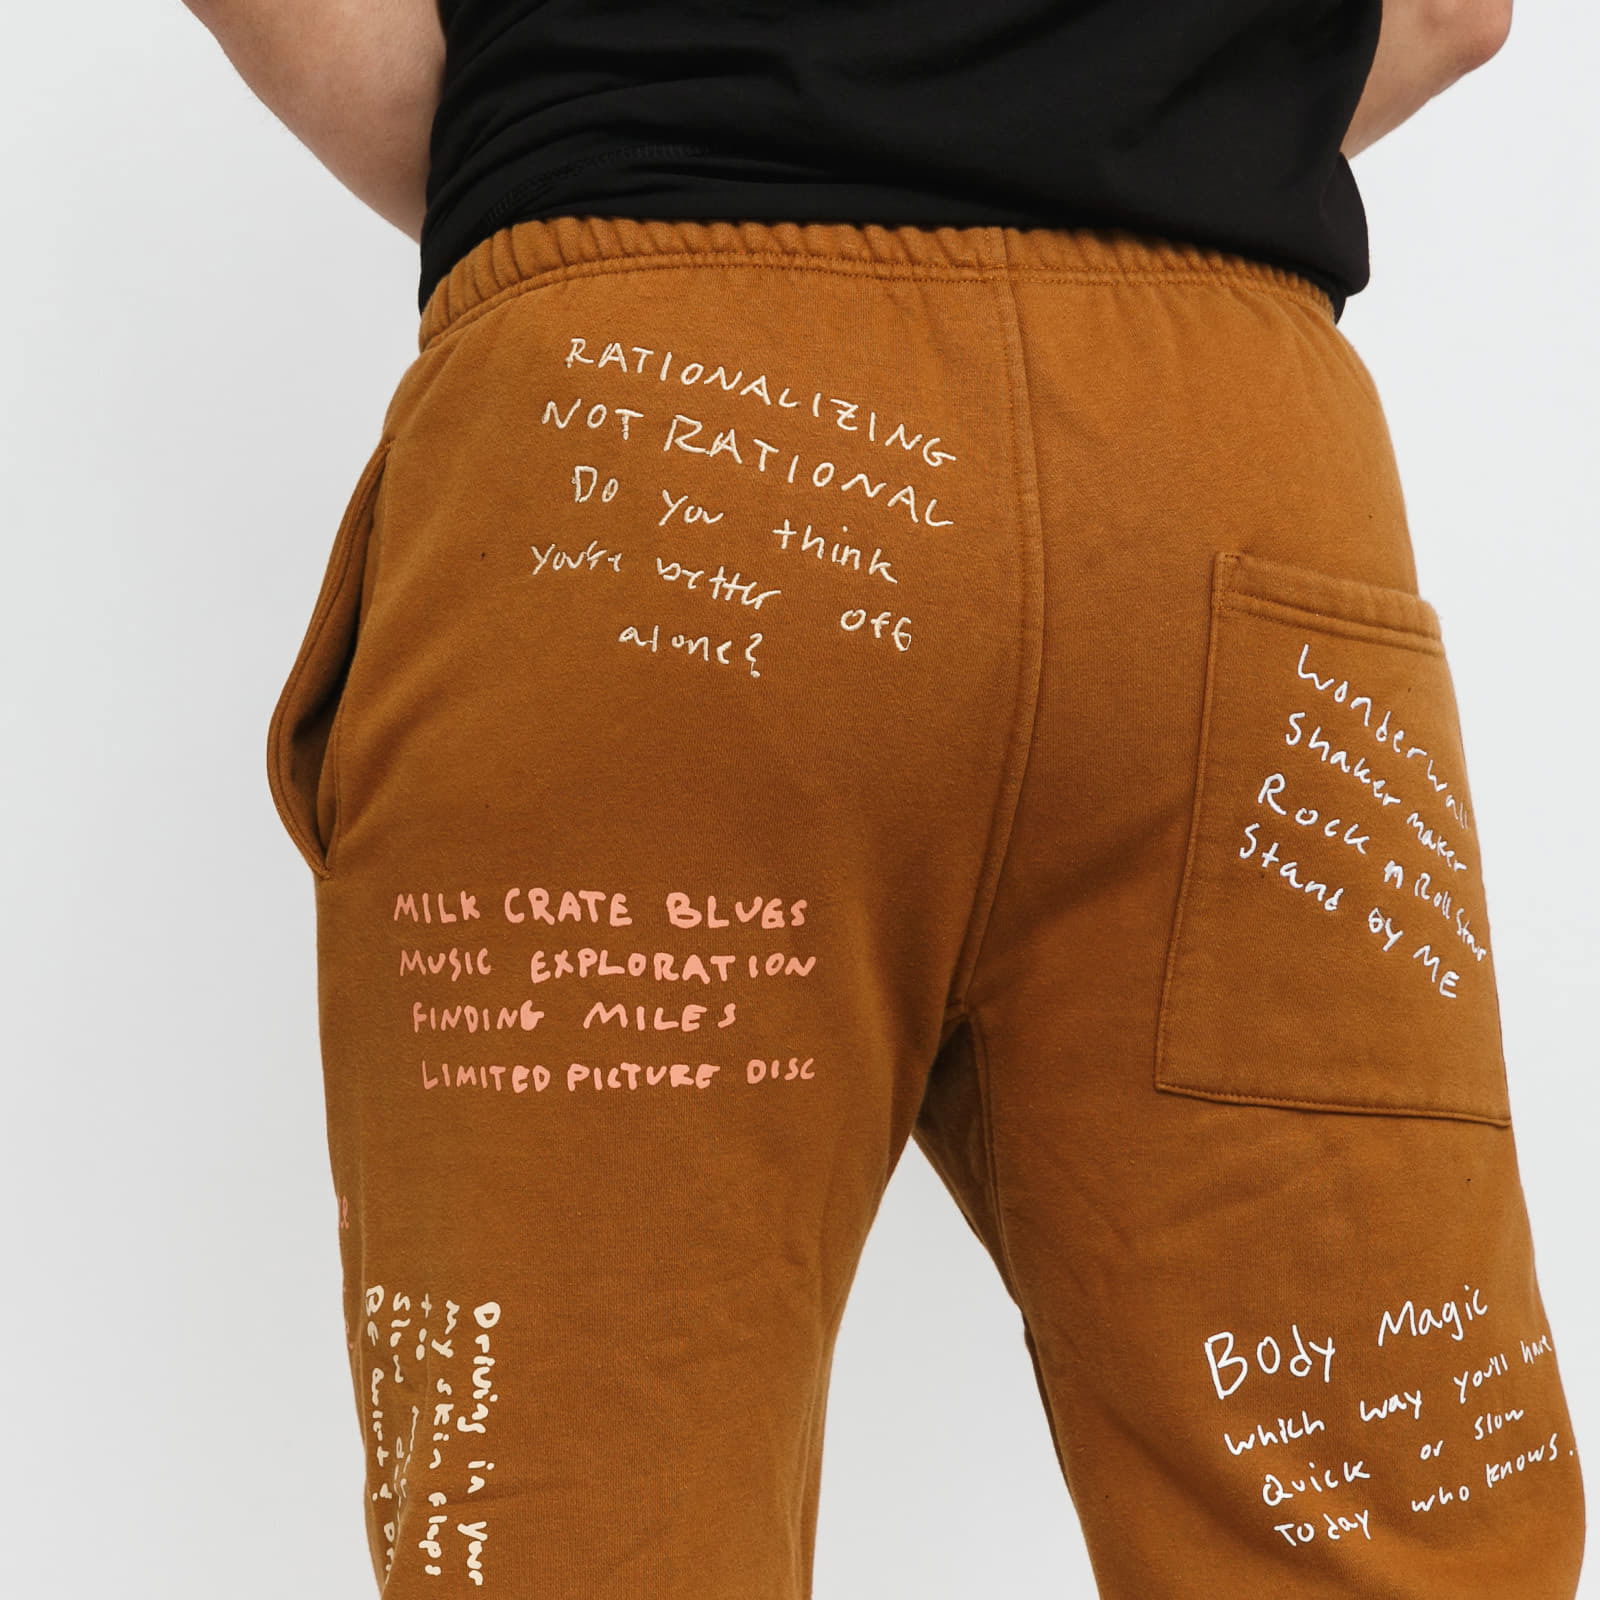 RATIONALIZING
NOT RATIONAL
Do You think
you're better off
alone?
Wonderwall
Shaker maker
Rock n Roll Star
Stand by ME
MILK CRATE BLUES
MUSIC EXPLORATION
FINDING MILES
LIMITED PICTURE DISC
Driving in your
my skin flaps
too
Slow
Be quiet!
Body Magic
which way you'll have
Quick or slow
Today who knows.